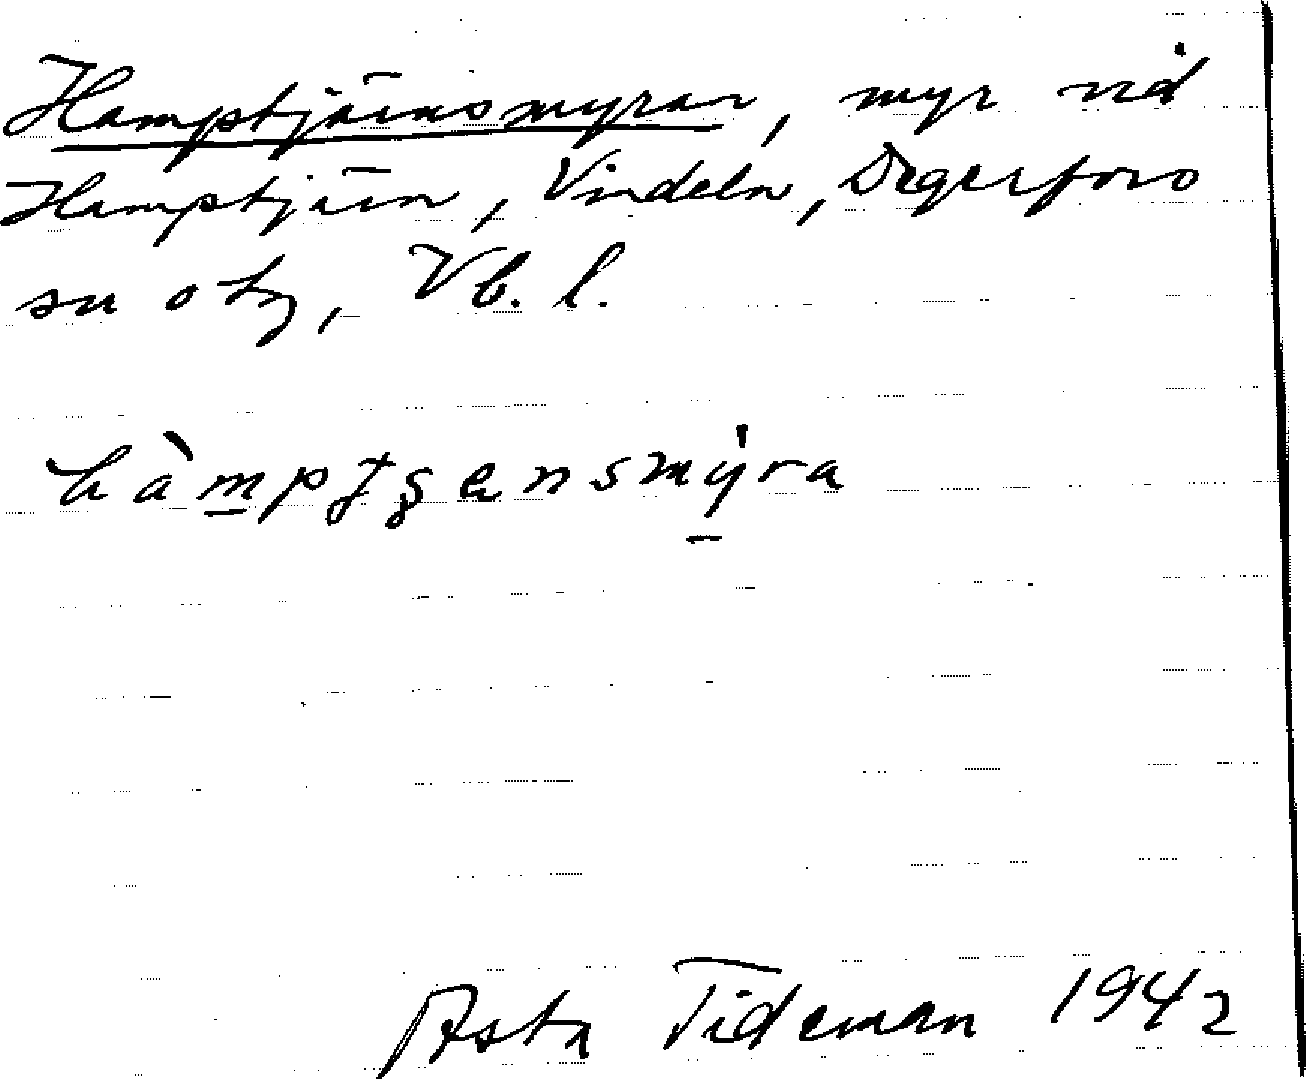 Hamptjärnsmyran, myr vid
Hamptjärn, Vindeln, Degerfors
sn o tg, Vb. l.
Asta Tideman 1942